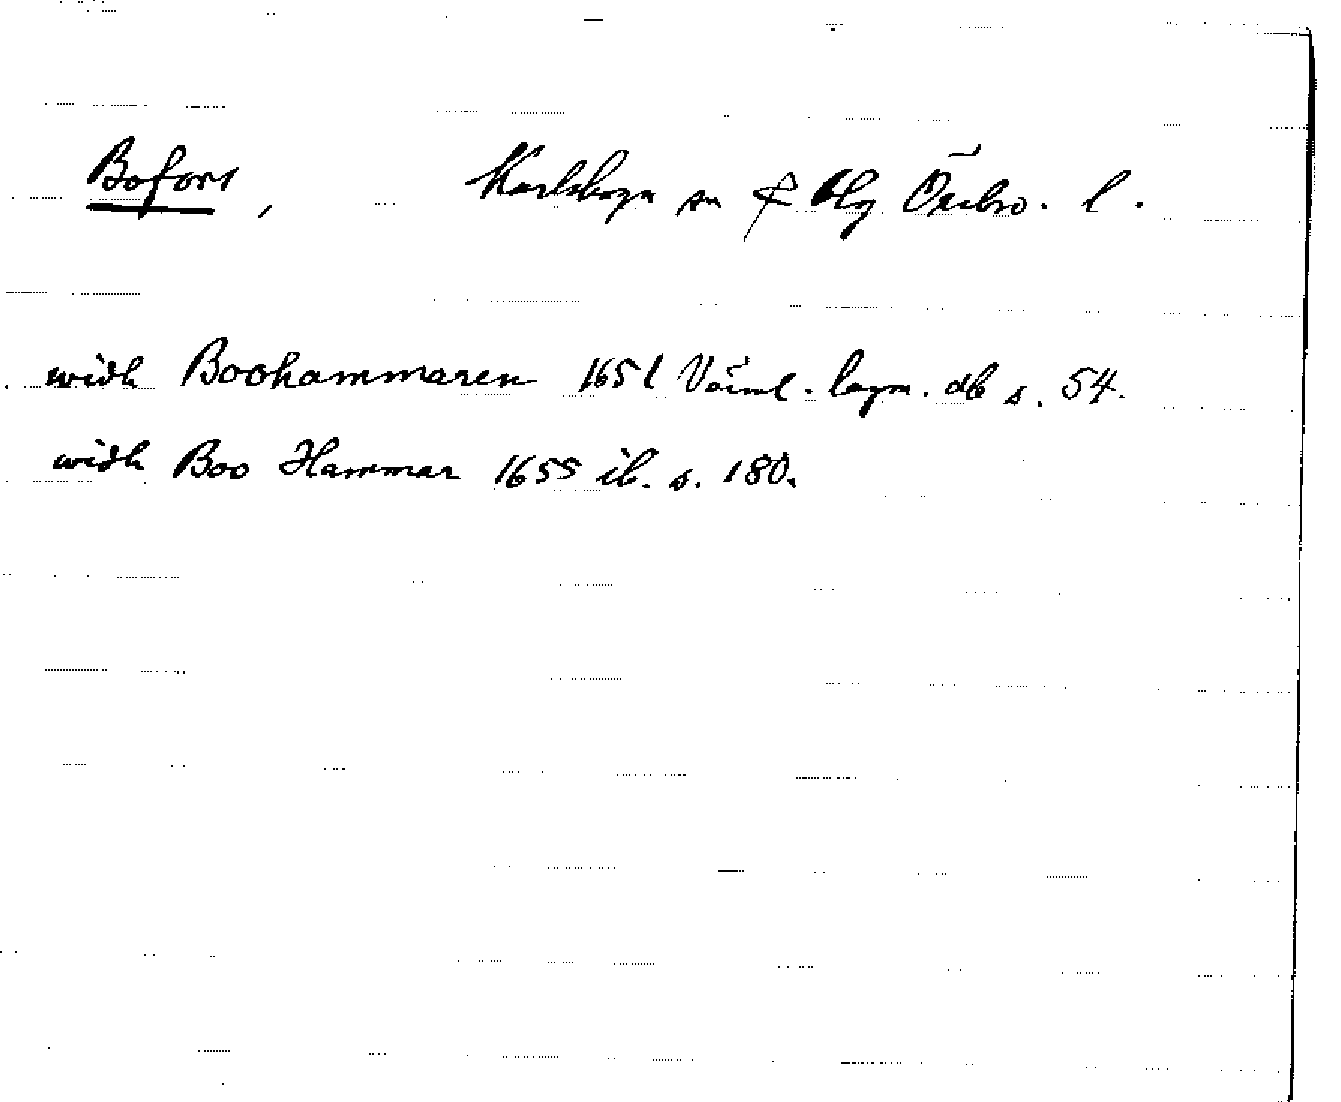 Bofors, Karlskoga sn & Blg Örebro. l.
widh Boohammaren 1651 Värml. lagm. db s. 54.
widh Boo Hammar 1655 ib. s. 180.